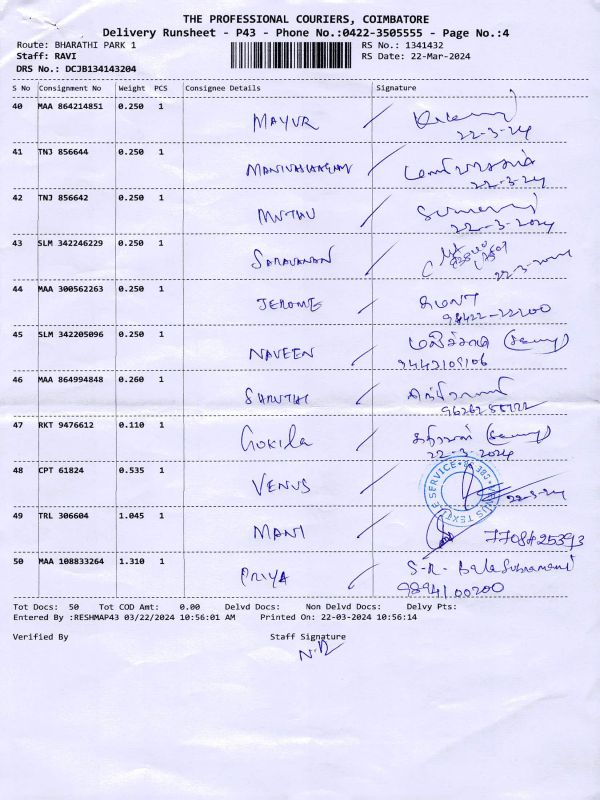 THE PROFESSIONAL COURIERS, COIMBATORE
Delivery Runsheet - P43 - Phone No.:0422-3505555 - Page No.:4
Route: BHARATHI PARK 1 RS No.: 1341432
Staff: RAVI RS Date: 22-Mar-2024
DRS No.: DCJB134143204
S No Consignment No Weight PCS Consignee Details Signature
40 MAA 864214851 0.250 1 MAYUR
22-3-24
41 TNJ 856644 0.250 1
22-3-24
42 TNJ 856642 0.250 1 MUTHU
22-3-2024
43 SLM 342246229 0.250 1 SARAVANAN
44 MAA 300562263 0.250 1 JEROME
98422-22200
45 SLM 342205096 0.250 1 NAVEEN
9443105106
46 MAA 864994848 0.260 1 SHRUTHI
47 RKT 9476612 0.110 1 Gokila
22-3-2024
48 CPT 61824 0.535 1 VENUS
22-3-24
49 TRL 306604 1.045 1 MANI
50 MAA 108833264 1.310 1 PRIYA S-R- Bala Subramani
9894100200
Tot Docs: 50 Tot COD Amt: 0.00 Delvd Docs: Non Delvd Docs: Delvy Pts:
Entered By :RESHMAP43 03/22/2024 10:56:01 AM Printed On: 22-03-2024 10:56:14
Verified By Staff Signature